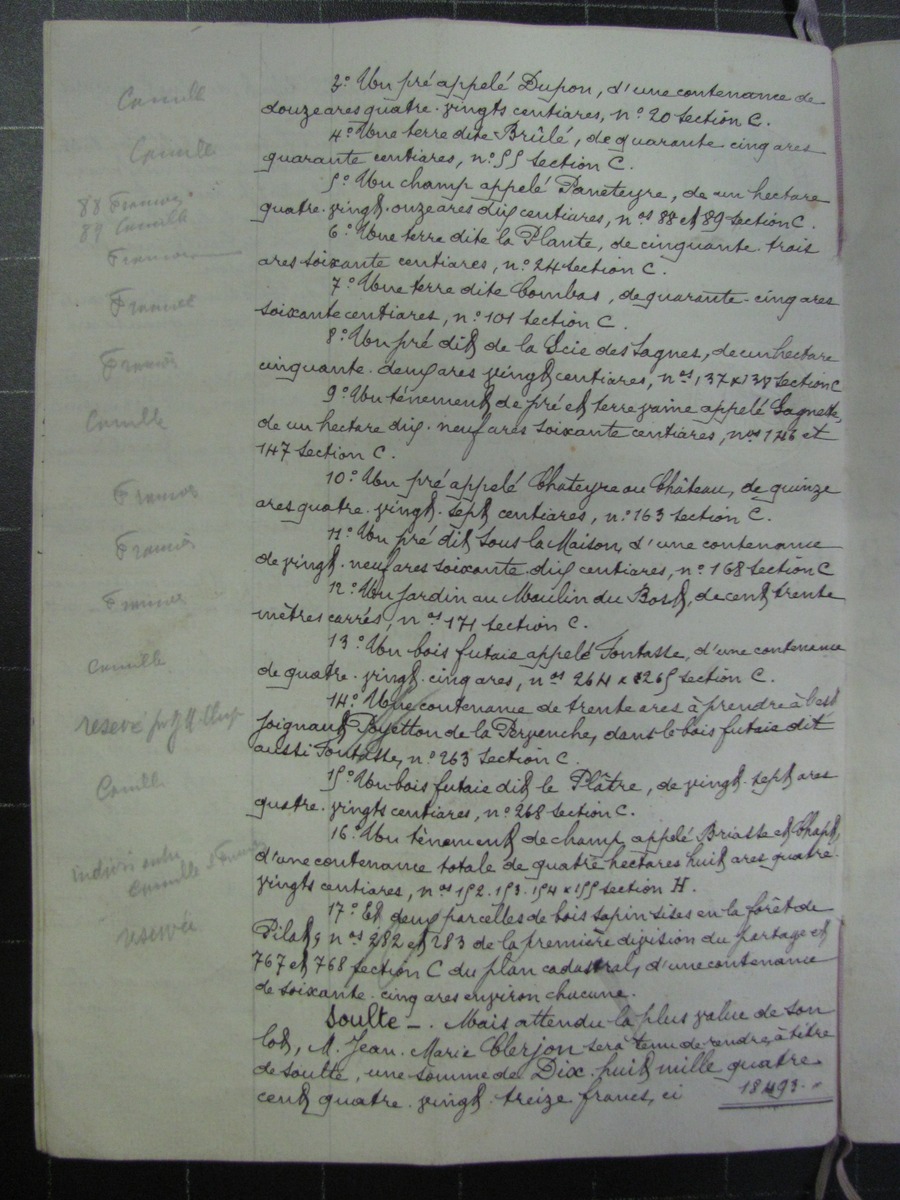 Camille
3° Un pré appelé Dupon, d'une contenance de
douze ares quatre-vingts centiares, n° 20 section C.
Camille
4° Une terre dite Brûlé, de quarante cinq ares
quarante centiares, n° 55 section C.
88 Francois
89 Camille
5° Un champ appelé Paneteyre, de un hectare
quatre-vingt-onze ares dix centiares, nos 88 et 89 section C.
Francois
6° Une terre dite la Plante, de cinquante-trois
ares soixante centiares, n° 24 section C.
Francois
7° Une terre dite Combas, de quarante-cinq ares
soixante centiares, n° 101 section C.
Francois
8° Un pré dit de la Scie des Sagnes, de un hectare
cinquante-deux ares vingt centiares, nos 137 x 138 section C
Camille
9° Un ténement de pré et terre vaine appelé Sagnette,
de un hectare dix-neuf ares soixante centiares, nos 146 et
147 section C.
Francois
10° Un pré appelé Chateyre ou Château, de quinze
ares quatre-vingt-sept centiares, n° 163 section C.
Francois
11° Un pré dit sous la Maison, d'une contenance
de vingt-neuf ares soixante-dix centiares, n° 168 section C
Francois
12° Un jardin au Moulin du Bost, de cent trente
mètres carrés, nos 171 section C.
Camille
13° Un bois futaie appelé Fontasse, d'une contenance
de quatre-vingt-cinq ares, nos 264 x 265 section C.
reservé
14° Une contenance de trente ares à prendre à l'est
joignant de la Pervenche, dans le bois futaie dit
aussi Fontasse, n° 263 section C.
Camille
15° Un bois futaie dit le Plâtre, de vingt-sept ares
quatre-vingts centiares, n° 268 section C.
indivis entre
Camille &
16° Un ténement de champ appelé Briasse et
d'une contenance totale de quatre hectares huit ares quatre-
vingts centiares, nos 152. 153. 154 x 155 section H.
reservée
17° Et deux parcelles de bois sapin sises en la forêt de
Pilat, nos 282 et 283 de la première division du partage et
767 et 768 section C du plan cadastral, d'une contenance
de soixante-cinq ares environ chacune.
Soulte -. Mais attendu la plus value de son
lot, M. Jean-Marie Clerjon sera tenu de rendre, à titre
de soulte, une somme de Dix-huit mille quatre
cent quatre-vingt-treize francs, ci 18493. "